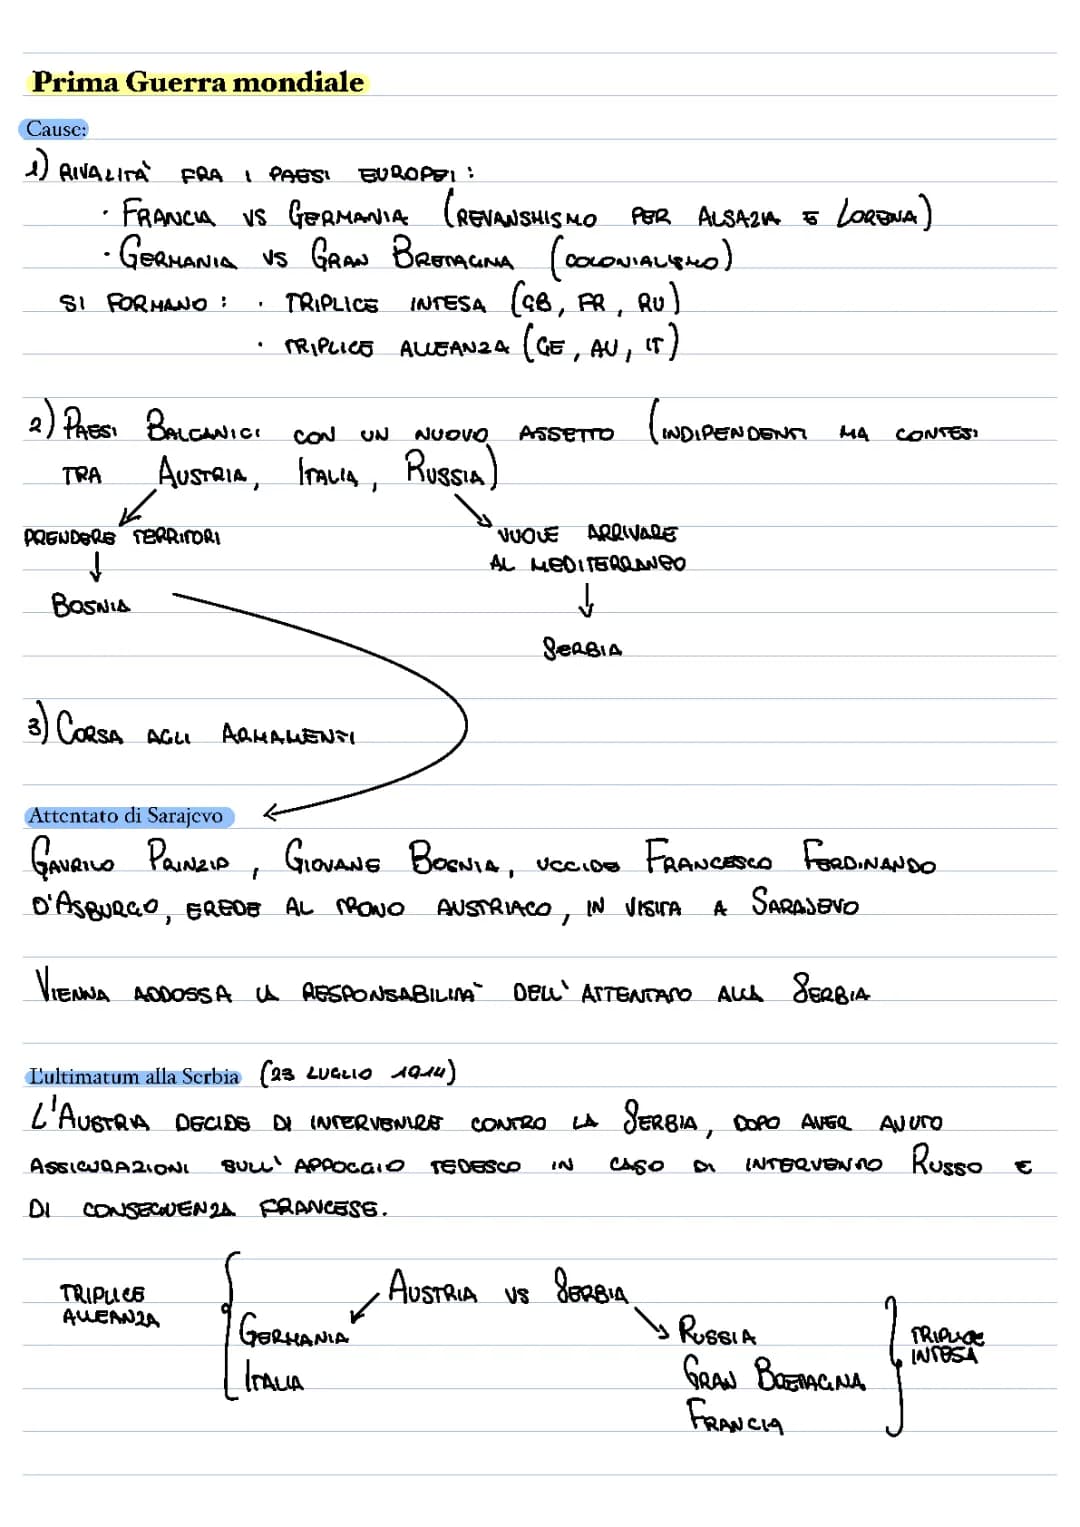 Prima Guerra mondiale
Cause:
1) RIVALITÀ FRA I PAESI EUROPEI:
· FRANCIA VS GERMANIA (REVANSHISMO PER ALSAZIA E LORENA)
· GERMANIA VS GRAN BRETAGNA (COLONIALISMO)
SI FORMANO: · TRIPLICE INTESA (GB, FR, RU)
· TRIPLICE ALLEANZA (GE, AU, IT)
2) PAESI BALCANICI CON UN NUOVO ASSETTO (INDIPENDENTI MA CONTESI
TRA AUSTRIA, ITALIA, RUSSIA)
PRENDERE TERRITORI VUOLE ARRIVARE
↓ AL MEDITERRANEO
BOSNIA ↓
SERBIA
3) CORSA AGLI ARMAMENTI
Attentato di Sarajevo
GAVRILO PRINZIP, GIOVANE BOSNIA, UCCIDE FRANCESCO FERDINANDO
D'ASBURGO, EREDE AL TRONO AUSTRIACO, IN VISITA A SARAJEVO
VIENNA ADDOSSA LA RESPONSABILITÀ DELL'ATTENTATO ALLA SERBIA
L'ultimatum alla Serbia (23 LUGLIO 1914)
L'AUSTRIA DECIDE DI INTERVENIRE CONTRO LA SERBIA, DOPO AVER AVUTO
ASSICURAZIONI SULL'APPOGGIO TEDESCO IN CASO DI INTERVENTO RUSSO E
DI CONSEGUENZA FRANCESE.
TRIPLICE AUSTRIA VS SERBIA
ALLEANZA GERMANIA RUSSIA TRIPLICE
ITALIA GRAN BRETAGNA INTESA
FRANCIA